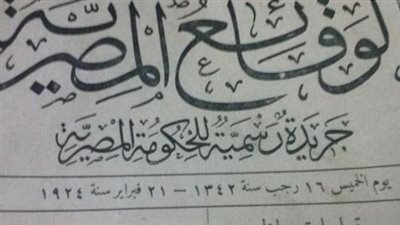 الوقائع المصرية
جريدة رسمية للحكومة المصرية
يوم الخميس ١٦ رجب سنة ١٣٤٢ — ٢١ فبراير سنة ١٩٢٤